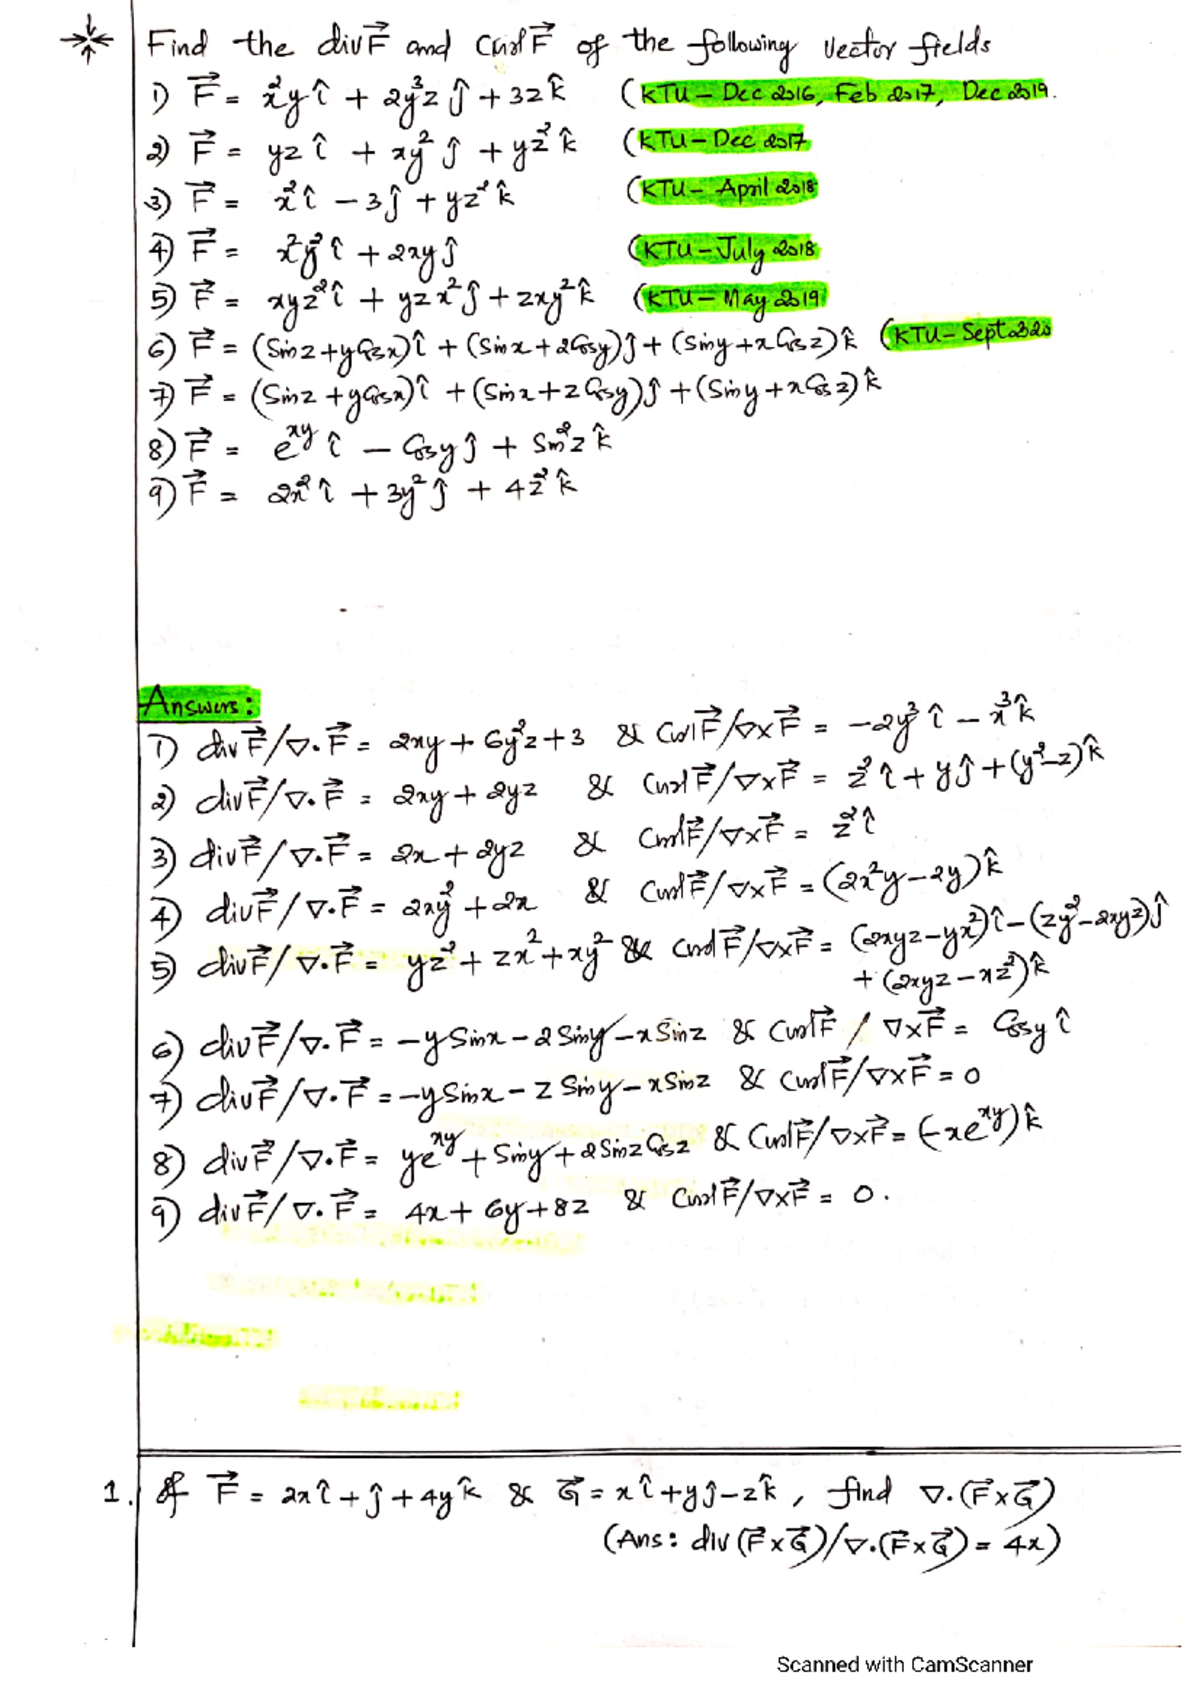 Find the div F⃗ and Curl F⃗ of the following vector fields
1) F⃗ = x²y î + 2y³z ĵ + 3z k̂ (KTU – Dec 2016, Feb 2017, Dec 2019.
2) F⃗ = yz î + xy² ĵ + yz² k̂ (KTU – Dec 2017
3) F⃗ = x² î – 3ĵ + yz² k̂ (KTU – April 2018
4) F⃗ = x²y² î + 2xy ĵ (KTU – July 2018
5) F⃗ = xyz² î + yzx² ĵ + zxy² k̂ (KTU – May 2019
6) F⃗ = (Sinz + yCosx) î + (Sinx + 2Cosy) ĵ + (Siny + xCosz) k̂ (KTU – Sept 2020
7) F⃗ = (Sinz + yCosx) î + (Sinx + zCosy) ĵ + (Siny + xCosz) k̂
8) F⃗ = e^xy î – Cosy ĵ + Sin²z k̂
9) F⃗ = 2x² î + 3y² ĵ + 4z² k̂
Answers:
1) div F⃗/∇.F⃗ = 2xy + 6y²z + 3 & Curl F⃗/∇×F⃗ = –2y³ î – x³ k̂
2) div F⃗/∇.F⃗ = 2xy + 2yz & Curl F⃗/∇×F⃗ = z² î + y ĵ + (y²–z) k̂
3) div F⃗/∇.F⃗ = 2x + 2yz & Curl F⃗/∇×F⃗ = z² î
4) div F⃗/∇.F⃗ = 2xy² + 2x & Curl F⃗/∇×F⃗ = (2x²y – 2y) k̂
5) div F⃗/∇.F⃗ = yz² + zx² + xy² & Curl F⃗/∇×F⃗ = (2xyz – yx²) î – (zy² – 2xyz) ĵ
+ (2xyz – xz²) k̂
6) div F⃗/∇.F⃗ = –ySinx – 2Siny – xSinz & Curl F⃗ / ∇×F⃗ = Cosy î
7) div F⃗/∇.F⃗ = –ySinx – zSiny – xSinz & Curl F⃗/∇×F⃗ = 0
8) div F⃗/∇.F⃗ = ye^xy + Siny + 2SinzCosz & Curl F⃗/∇×F⃗ = (–xe^xy) k̂
9) div F⃗/∇.F⃗ = 4x + 6y + 8z & Curl F⃗/∇×F⃗ = 0.
1. If F⃗ = 2x î + ĵ + 4y k̂ & G⃗ = x î + y ĵ – z k̂, find ∇.(F⃗×G⃗)
(Ans: div (F⃗×G⃗)/∇.(F⃗×G⃗) = 4x)
Scanned with CamScanner